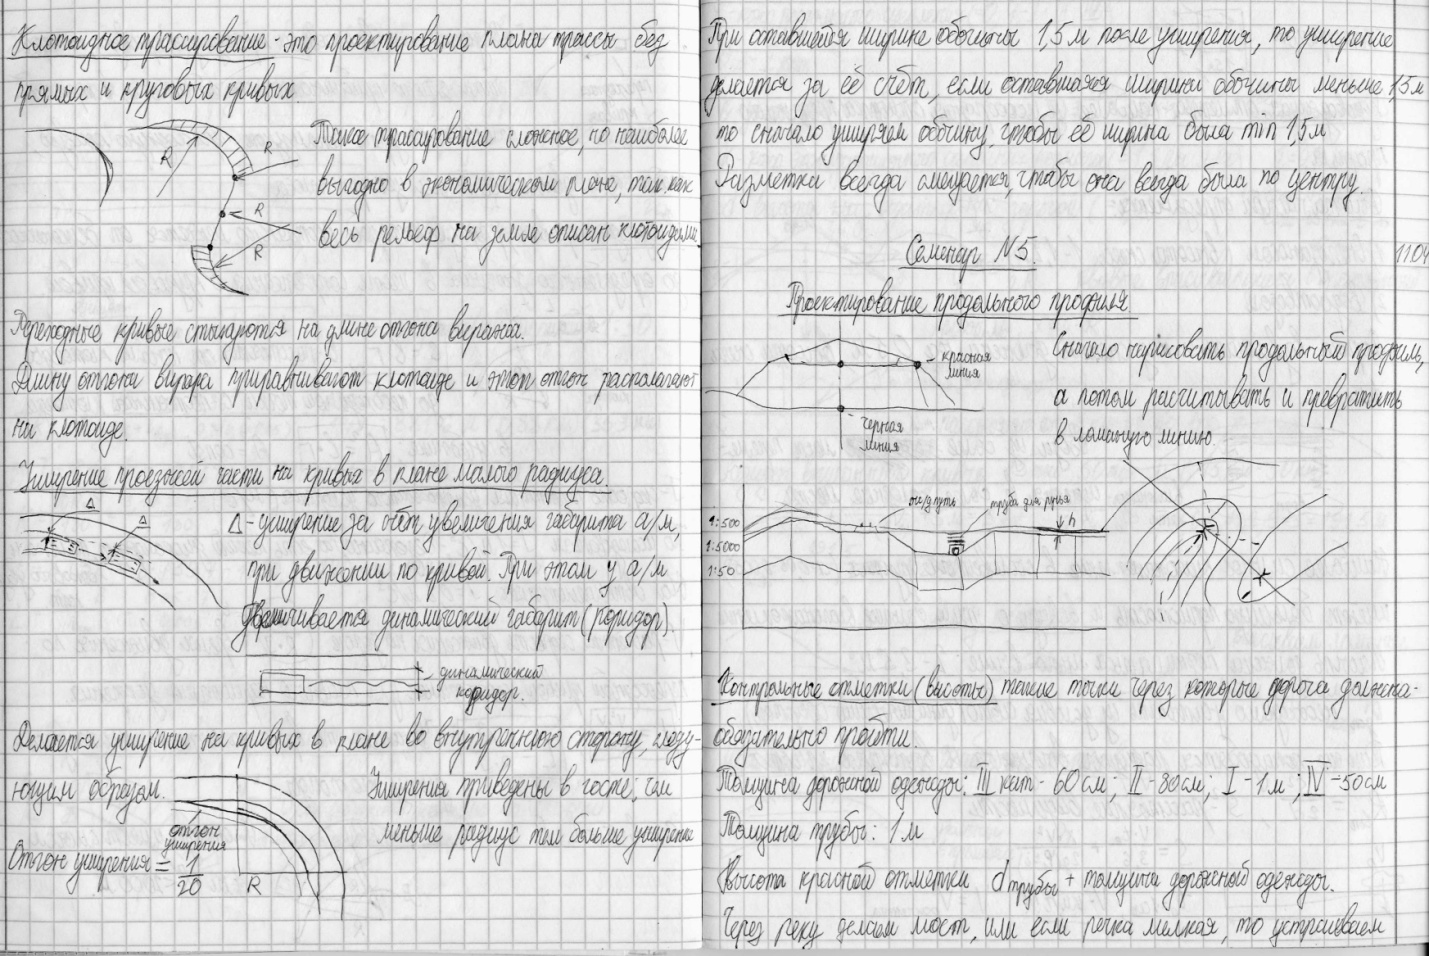 Клотоидное трассирование - это проектирование плана трассы без
прямых и круговых кривых.
Такое трассирование сложное, но наиболее
выгодно в экономическом плане, так как
весь рельеф на земле описан клотоидами
R
R
R
R
Переходные кривые стыкуются на длине отгона виража.
Длину отгона виража приравнивают клотоиде и этот отгон располагают
на клотоиде.
Уширение проезжей части на кривых в плане малого радиуса.
Δ
Δ
Δ - уширение за счёт увеличения габарита а/м,
при движении по кривой. При этом у а/м
увеличивается динамический габарит (коридор).
динамический
коридор.
Делается уширение на кривых в плане во внутреннюю сторону, следу-
ющим образом.
Уширения приведены в госте, чем
меньше радиус тем больше уширение
отгон
уширения
Отгон уширения = 1/20
R
При оставшейся ширине обочины 1,5 м после уширения, то уширение
делается за её счёт, если оставшаяся ширина обочины меньше 1,5 м
то сначало уширяем обочину, чтобы её ширина была min 1,5 м
Разметка всегда смещается, чтобы она всегда была по центру.
Семенар N5.
11.04
Проектирование продольного профиля.
красная
линия
черная
линия
Сначало нарисовать продольный профиль,
а потом расчитывать и превратить
в ломаную линию.
ж/д путь
труба для ручья
h
1:500
1:5000
1:50
Контрольные отметки (высоты) такие точки через которые дорога должна
обязательно пройти.
Толщина дорожной одежды: III кат - 60 см; II - 80 см; I - 1 м; IV - 50 см
Толщина трубы: 1 м
Высота красной отметки d трубы + толщина дорожной одежды.
Через реку делаем мост, или если речка мелкая, то устраиваем